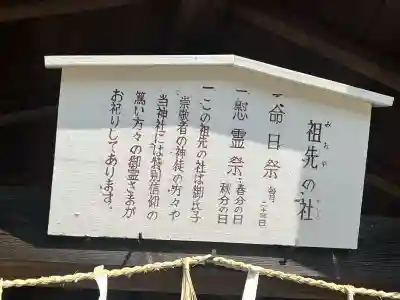 祖先の社
みおや やしろ
一命日祭 毎月二十三日
一慰霊祭 春分の日 秋分の日
一この祖先の社は御氏子
崇敬者の神徒の方々や
当神社には特別信仰の
篤い方々の御霊さまが
お祀りしてあります。